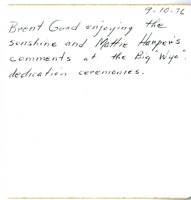 9-10-76
Brent Gurd enjoying the
sunshine and Mattie Harper's
comments at the Big "Wya".
dedication ceremonies.